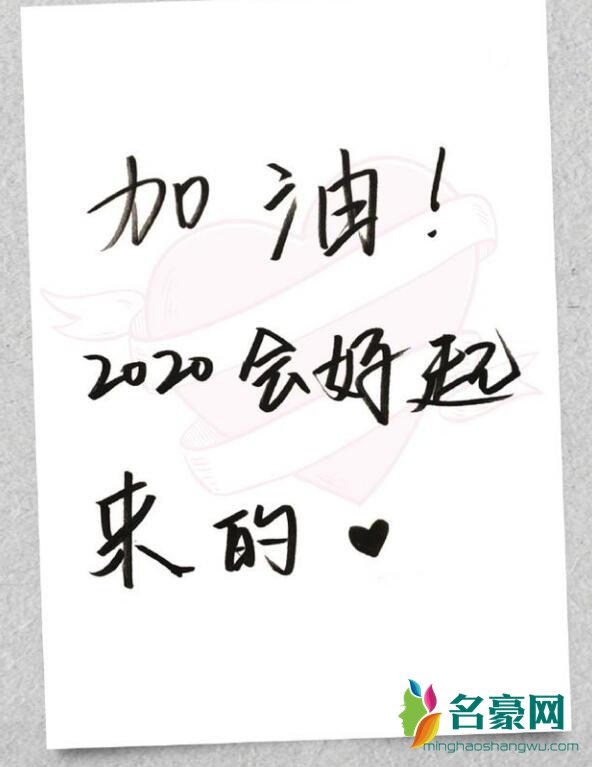 加油!
2020会好起
来的♥
名豪网
minghaoshangwu.com